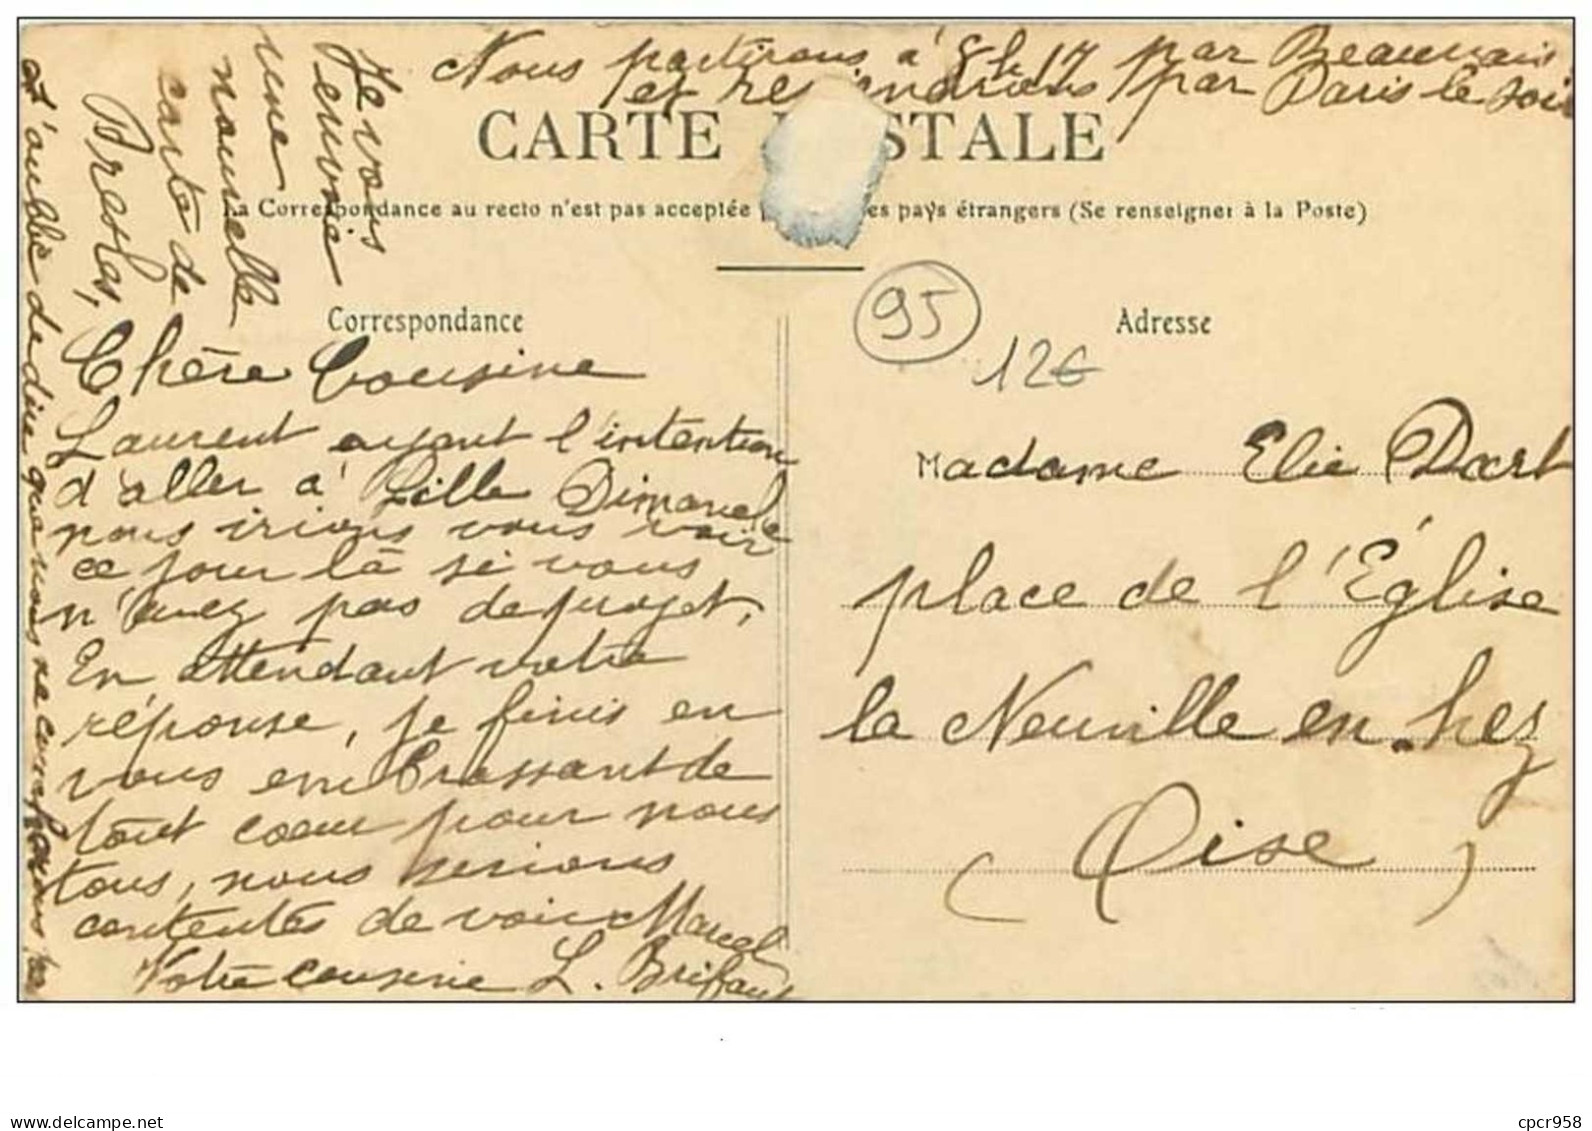 Nous partirons à 8h 17 par Beauvais
et reviendrons par Paris le soir
CARTE POSTALE
La Correspondance au recto n'est pas acceptée es pays étrangers (Se renseigner à la Poste)
Je vous
envoie
une
nouvelle
carte de
Bresles,
Correspondance
Chère Cousine
Laurent ayant l'intention
d'aller à Lille Dimanche
nous irions vous voir
ce jour là si vous
n'avez pas de projet,
En attendant votre
réponse, je finis en
vous embrassant de
tout coeur pour nous
tous, nous serions
contentes de voir Marcel
Votre cousine L. Brifaut
J'oublie de dire que nous ne
95
12€
Adresse
Madame Elie Dart
place de l'Église
la Neuville en hez
(Oise)
delcampe.net
cpcr958